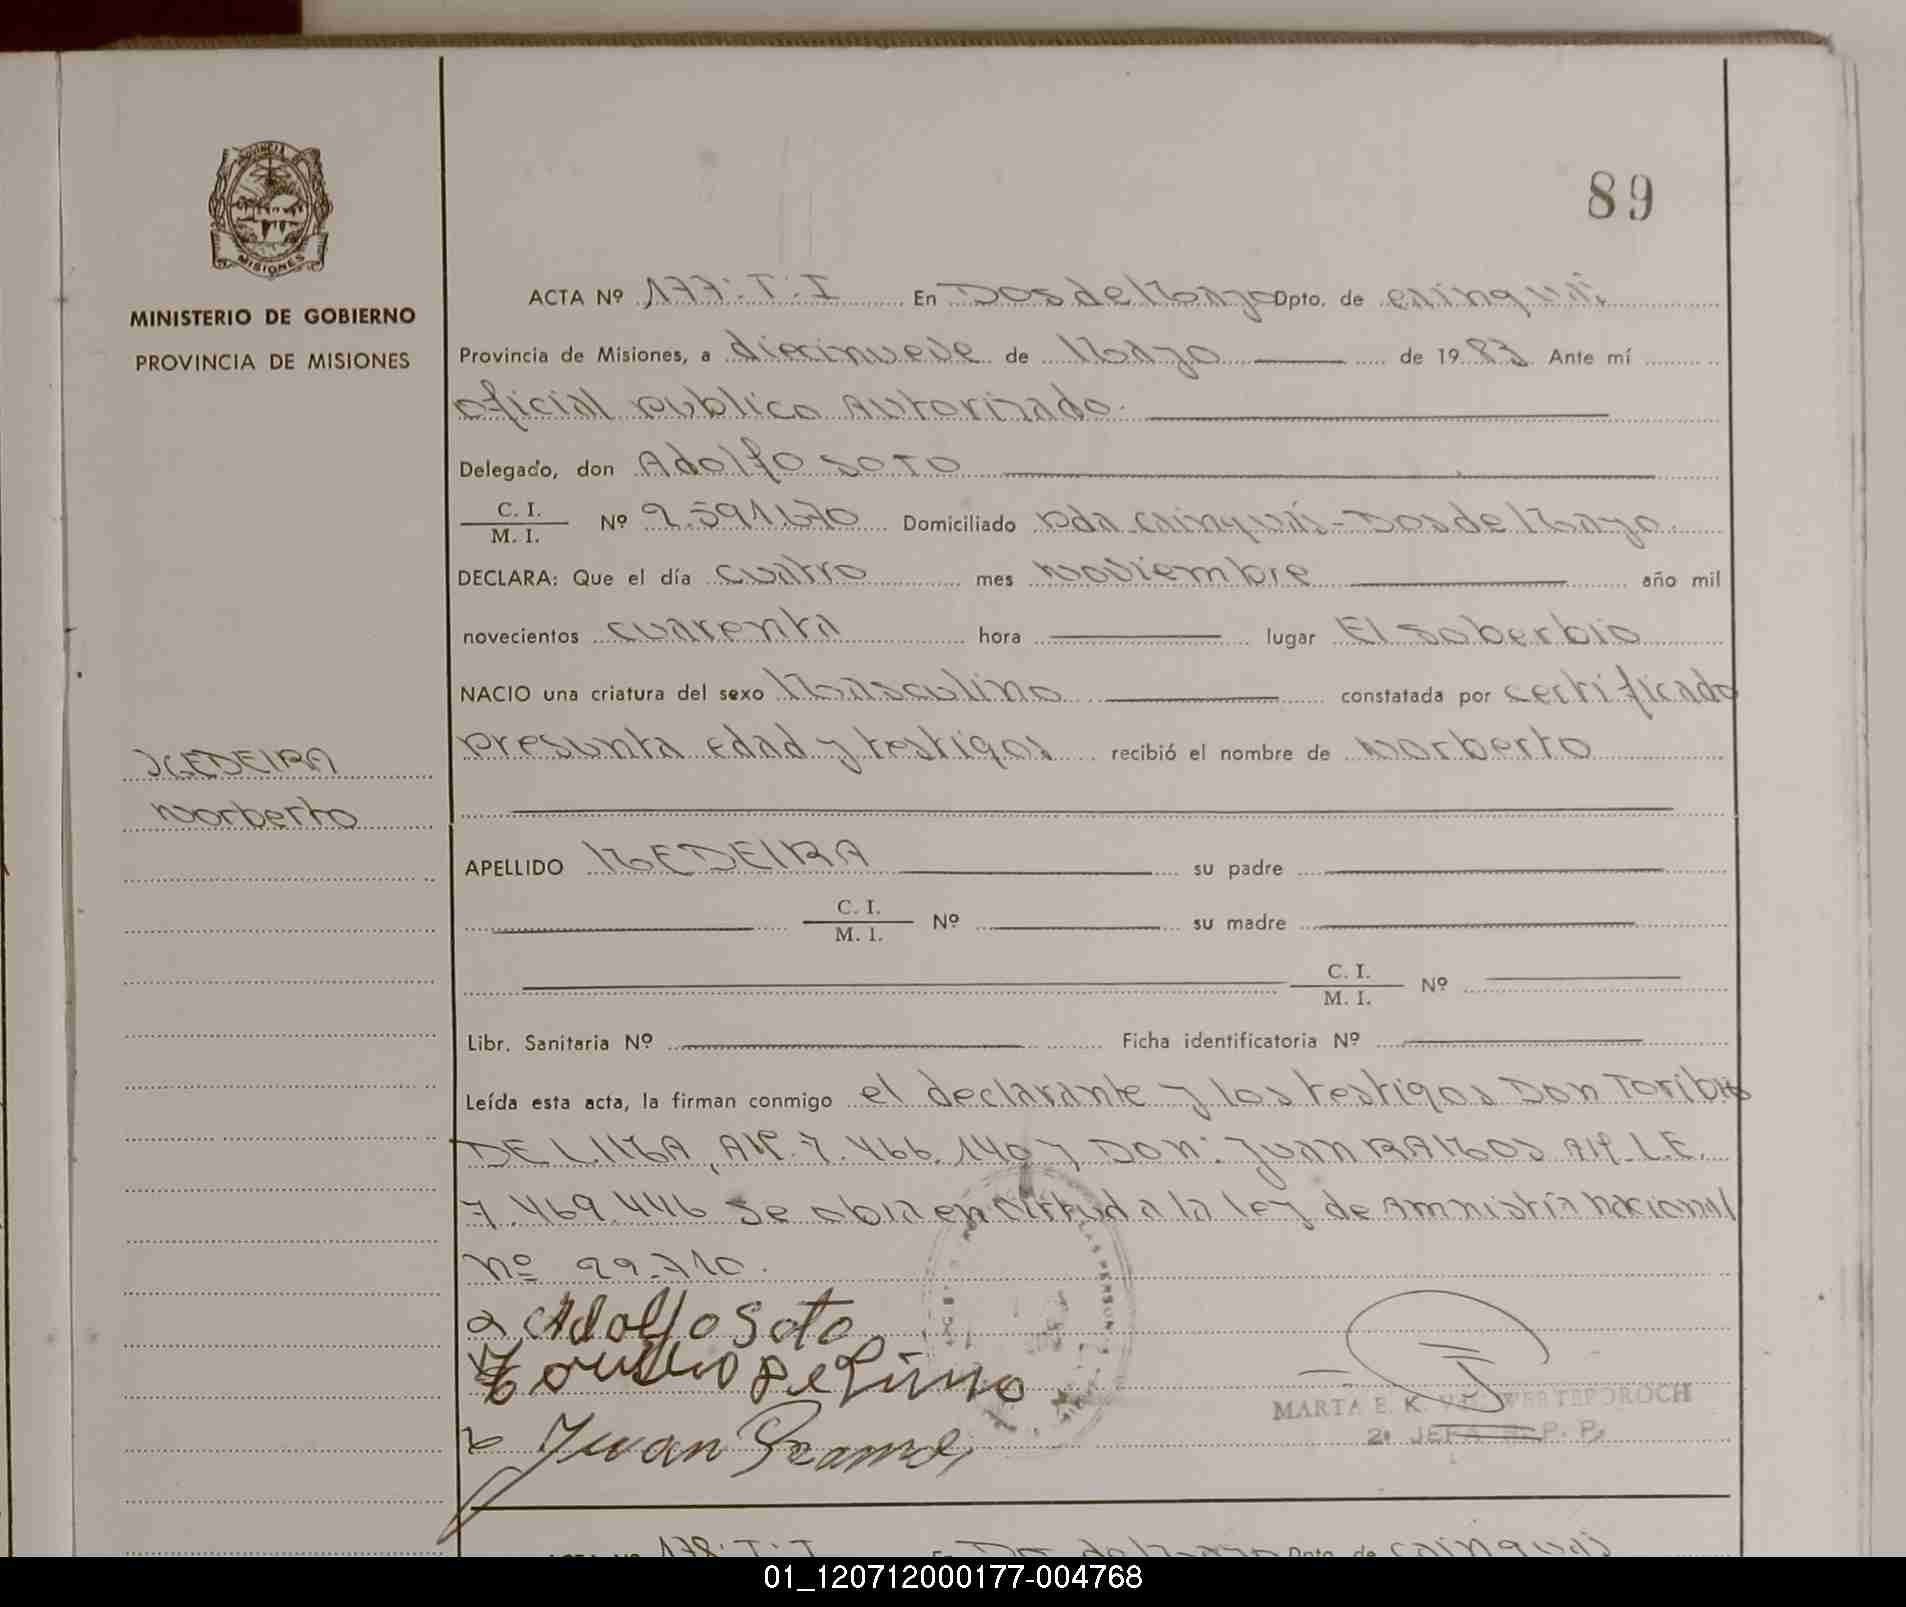 89
PROVINCIA DE
MISIONES
MINISTERIO DE GOBIERNO
PROVINCIA DE MISIONES
ACTA Nº 177. T. I En Dos de Mayo Dpto. de cainguás
Provincia de Misiones, a diecinueve de Mayo de 1983 Ante mí
oficial publico Autorizado.
Delegado, don Adolfo SOTO
C. I.
M. I. Nº 2.591.570 Domiciliado pda cainguás - Dos de Mayo.
DECLARA: Que el día cuatro mes noviembre año mil
novecientos cuarenta hora lugar El soberbio
NACIO una criatura del sexo Masculino constatada por certificado
presunta edad y testigos recibió el nombre de Norberto
MEDEIRA
Norberto
APELLIDO MEDEIRA su padre
C. I.
M. I. Nº su madre
C. I.
M. I. Nº
Libr. Sanitaria Nº Ficha identificatoria Nº
Leída esta acta, la firman conmigo el declarante y los testigos Don Toribio
DE LIMA, MI. 7.466.140 y DON: Juan RAMOS MI. L.E.
7.469.446 se obra en virtud a la ley de Amnistía nacional
Nº 22.710.
Adolfo Soto
Toribio de Lima
Juan Ramos
MARTA E. K. WERTEPOROCH
2º JEFA R. P. P.
ACTA Nº 178. T. I En Dos de Mayo Dpto. de cainguás
01_120712000177-004768